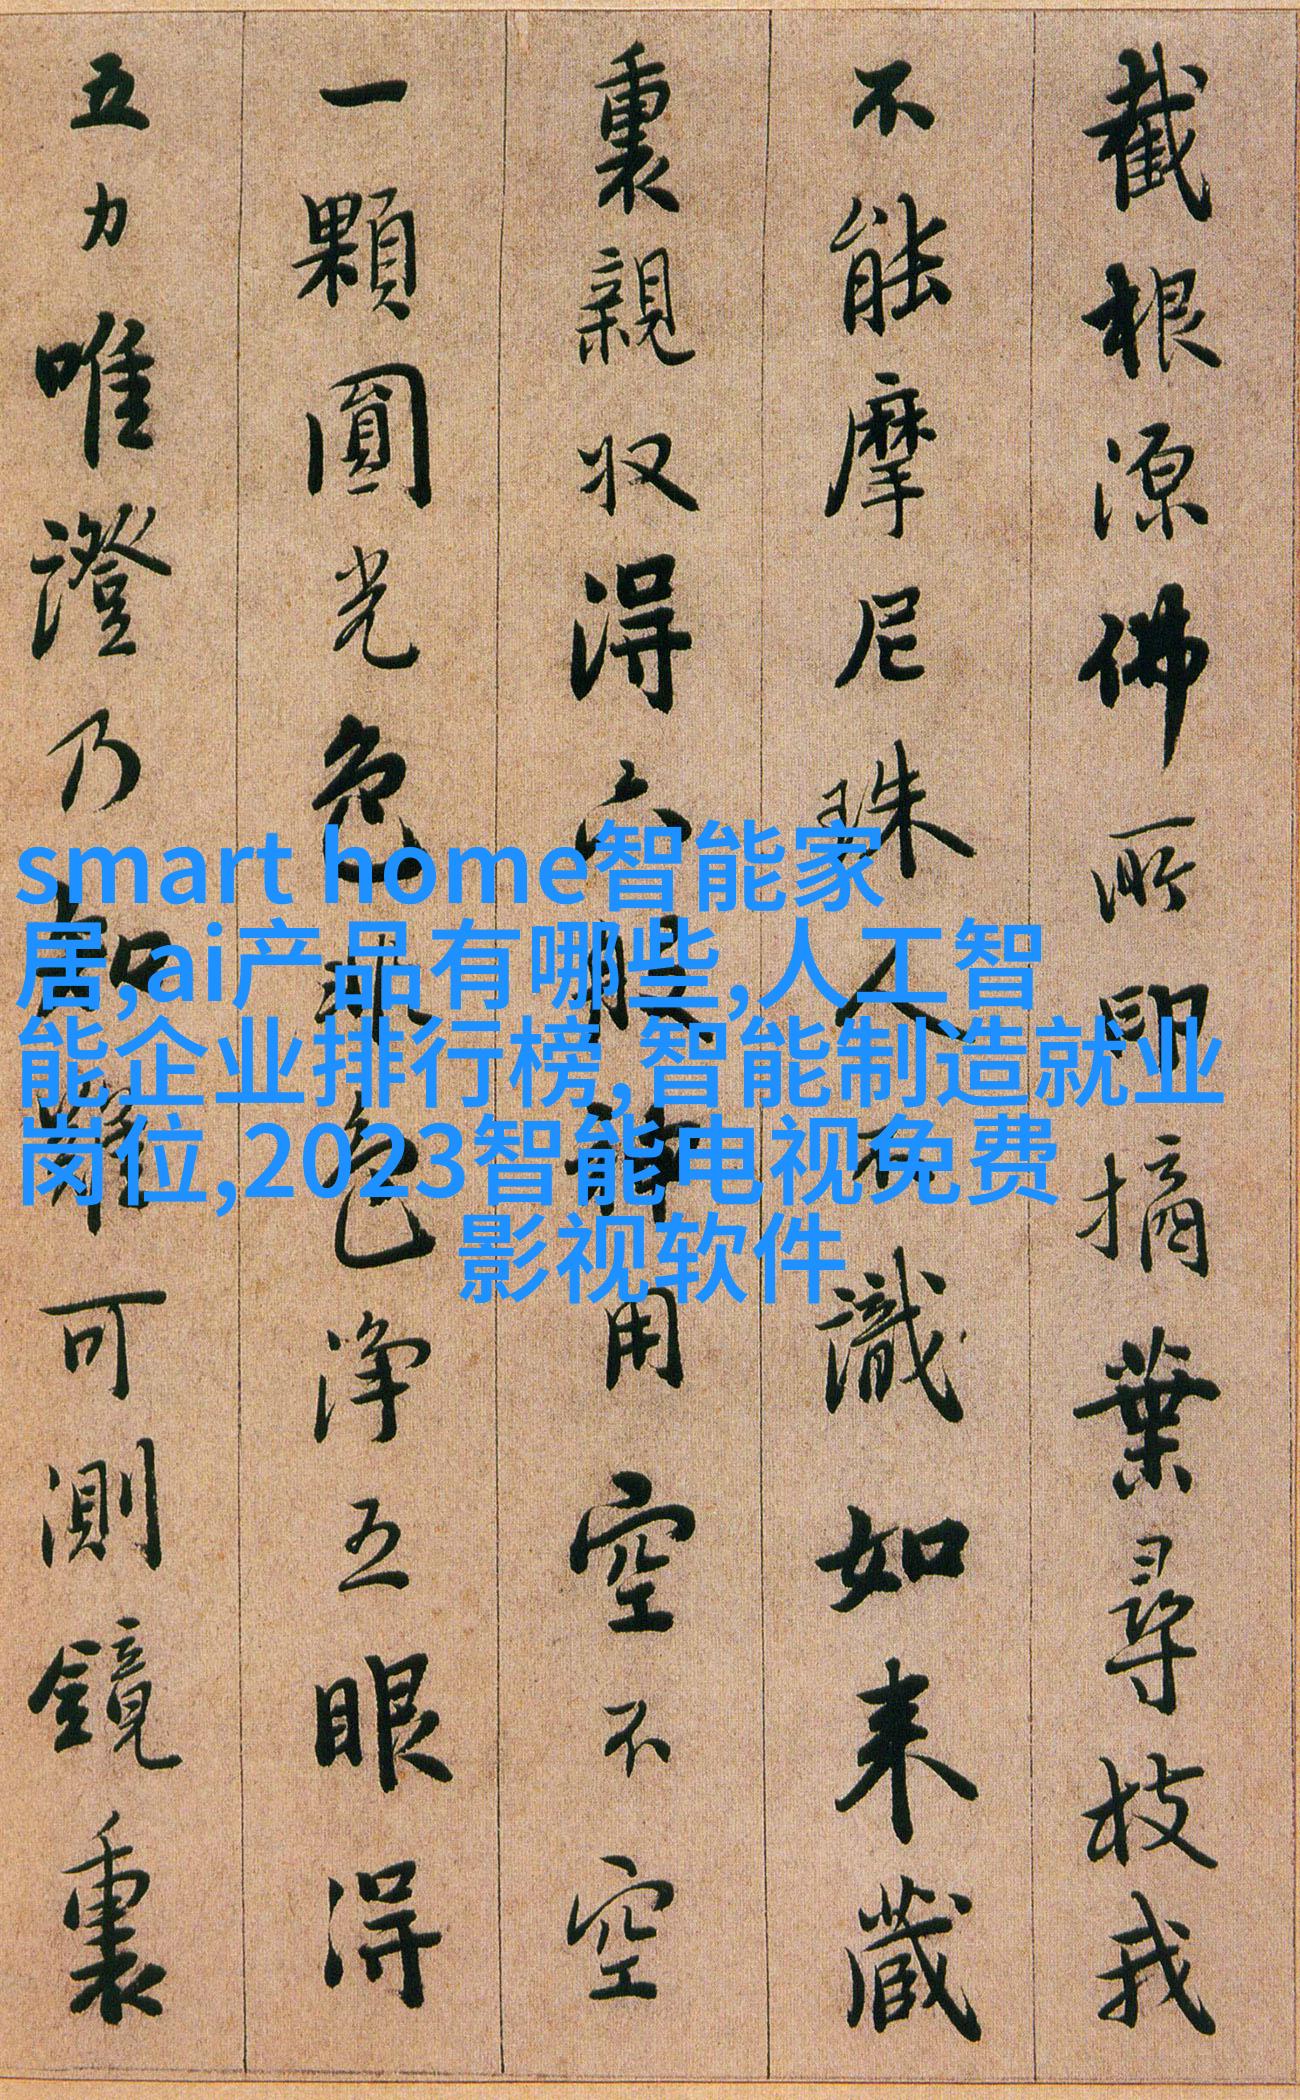 截根源佛所印摘葉尋枝我
不能摩尼珠人不識如来藏
裏親収得六般神用空不空
一顆圓光色非色淨五眼得
五力唯證乃知難可測鏡裏
smart home智能家
居,ai产品有哪些,人工智
能企业排行榜,智能制造就业
岗位,2023智能电视免费
影视软件